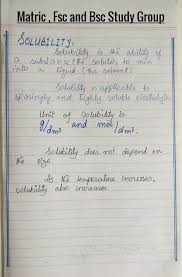 Matric , Fsc and Bsc Study Group
SOLUBILITY:
Solubility is the ability of
a substance (the solute) to
into a liquid (the solvent)
Solubility is applicable to
sparingly and highly soluble electrolytes
Unit of Solubility is
g/dm³ and mol/dm³.
Solubility does not depend on
the size.
As the temperature increases,
solubility also increases